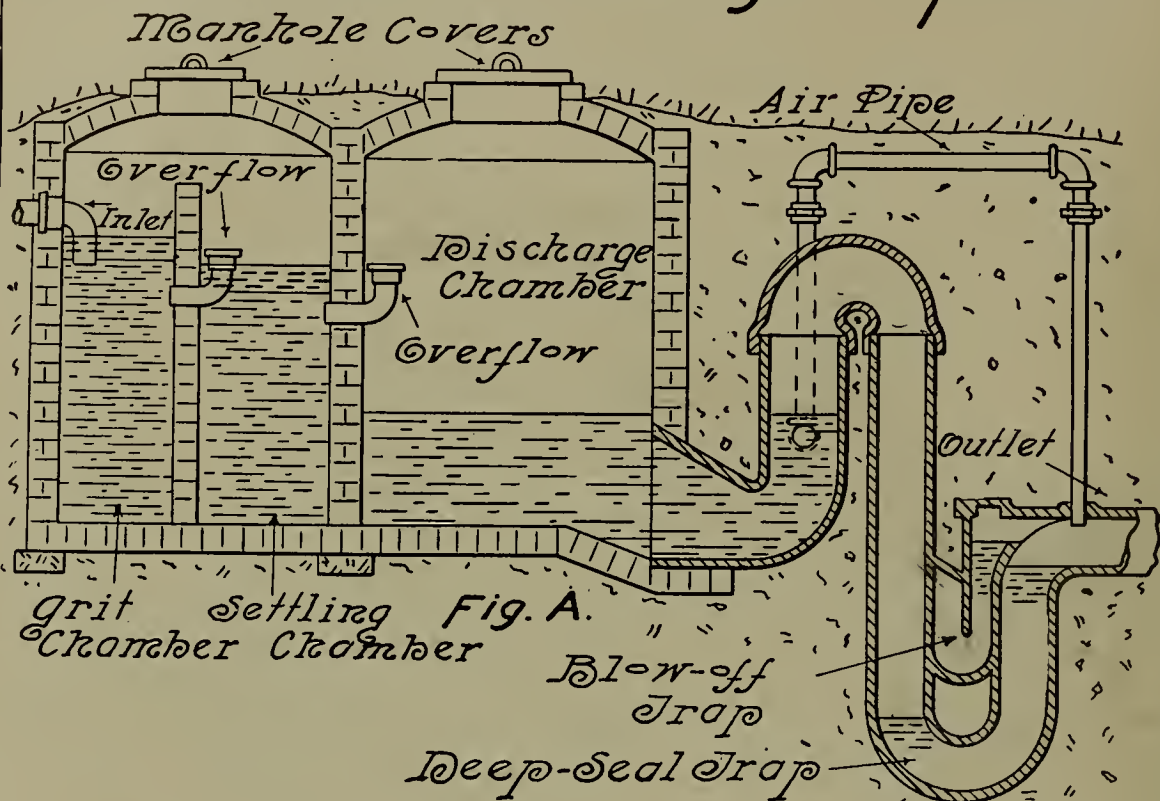 Manhole Covers
Air Pipe
Overflow
Inlet
Discharge
Chamber
Overflow
Outlet
Grit
Chamber
Settling
Chamber
Fig. A.
Blow-off
Trap
Deep-Seal Trap